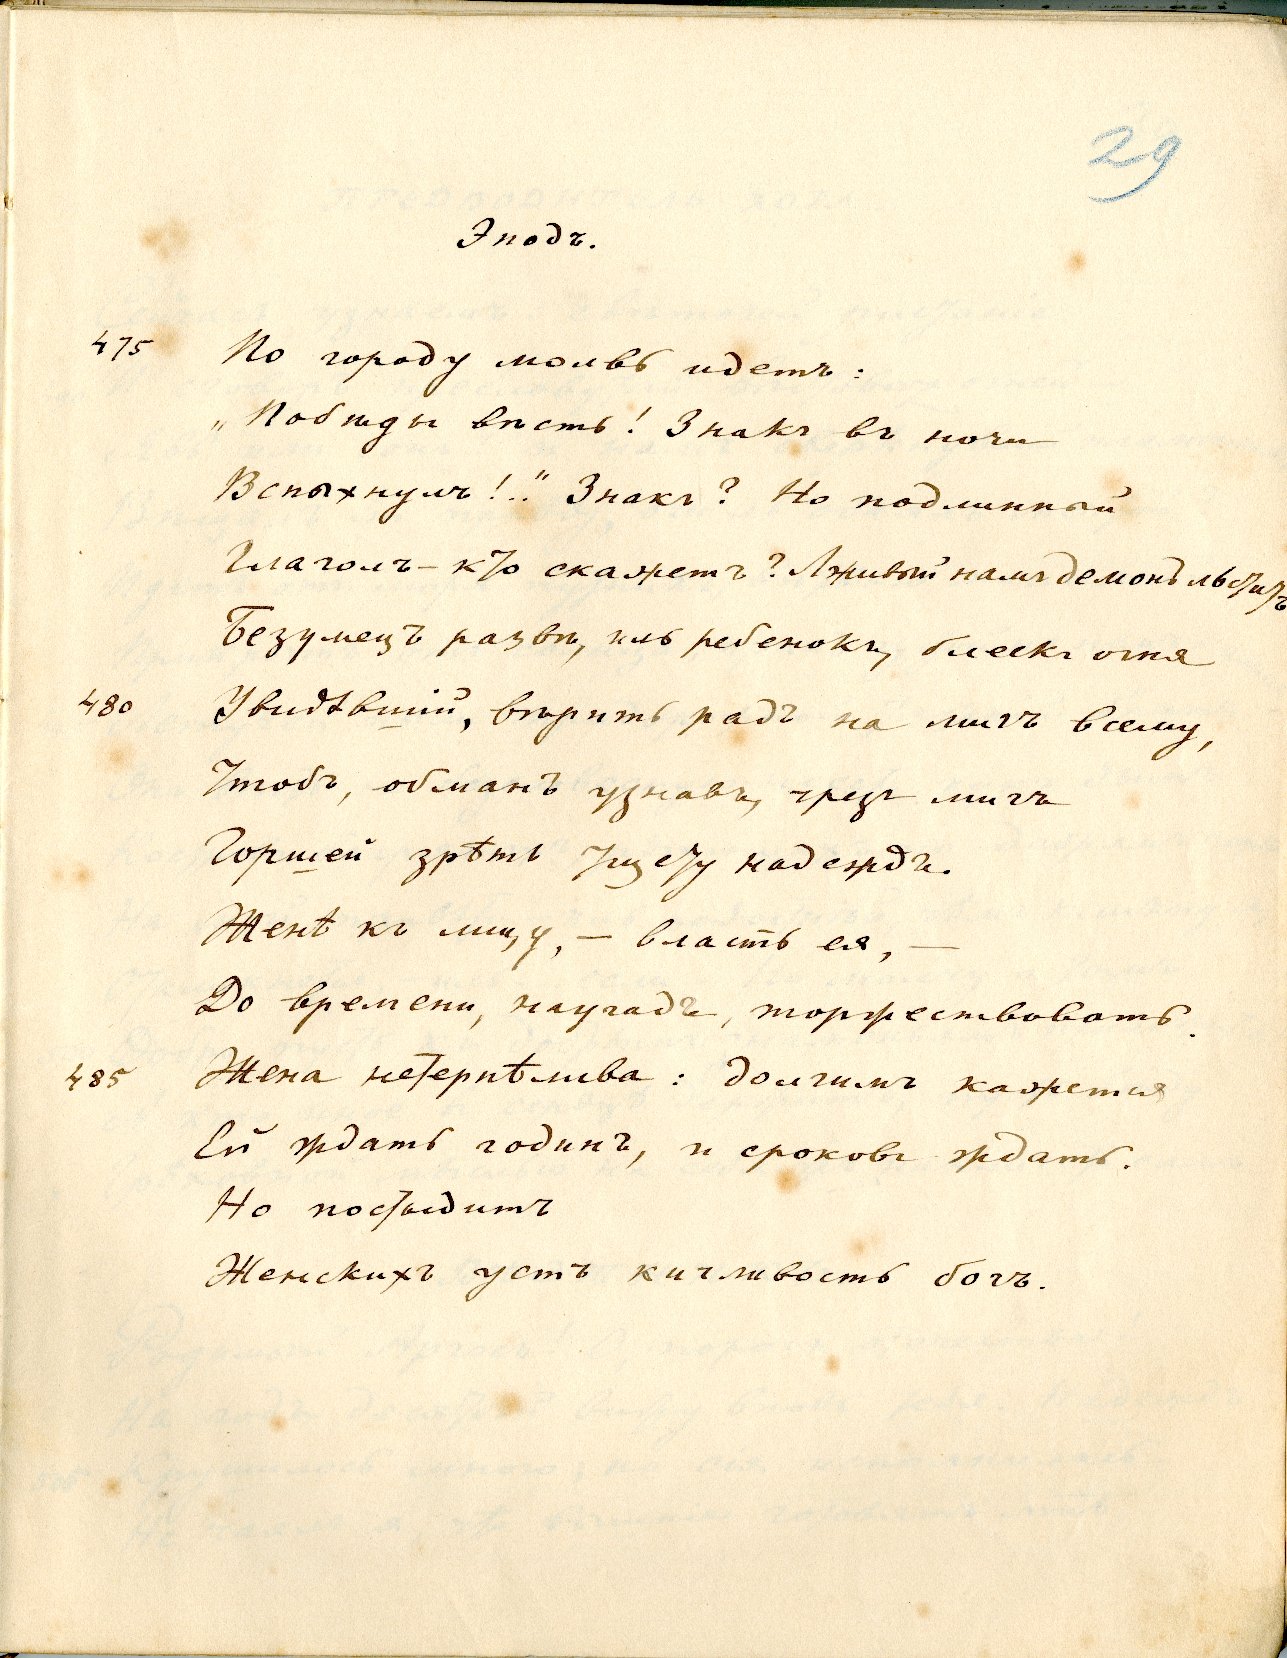 29
Эподъ.
475 По городу молвь идетъ:
„Побѣды вѣсть! Знакъ въ ночи
Вспыхнулъ!.." Знакъ? Но подлинный
Глаголъ – кто скажетъ? Лживый намъ демонъ льститъ
Безумецъ развѣ, иль ребенокъ, блескъ огня
480 Увидѣвшій, вѣрить радъ на мигъ всему,
Чтобъ, обманъ узнавъ, чрезъ мигъ
Горшей зрѣть тщету надеждъ.
Женѣ къ лицу, – власть ея, –
До времени, наугадъ, торжествовать.
485 Жена нетерпѣлива: долгимъ кажется
Ей ждать годинъ, и сроковъ ждать.
Но постыдитъ
Женскихъ устъ кичливость богъ.